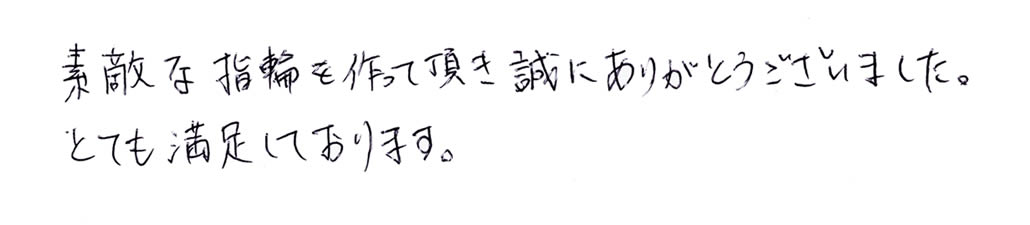 素敵な指輪を作って頂き誠にありがとうございました。
とても満足しております。